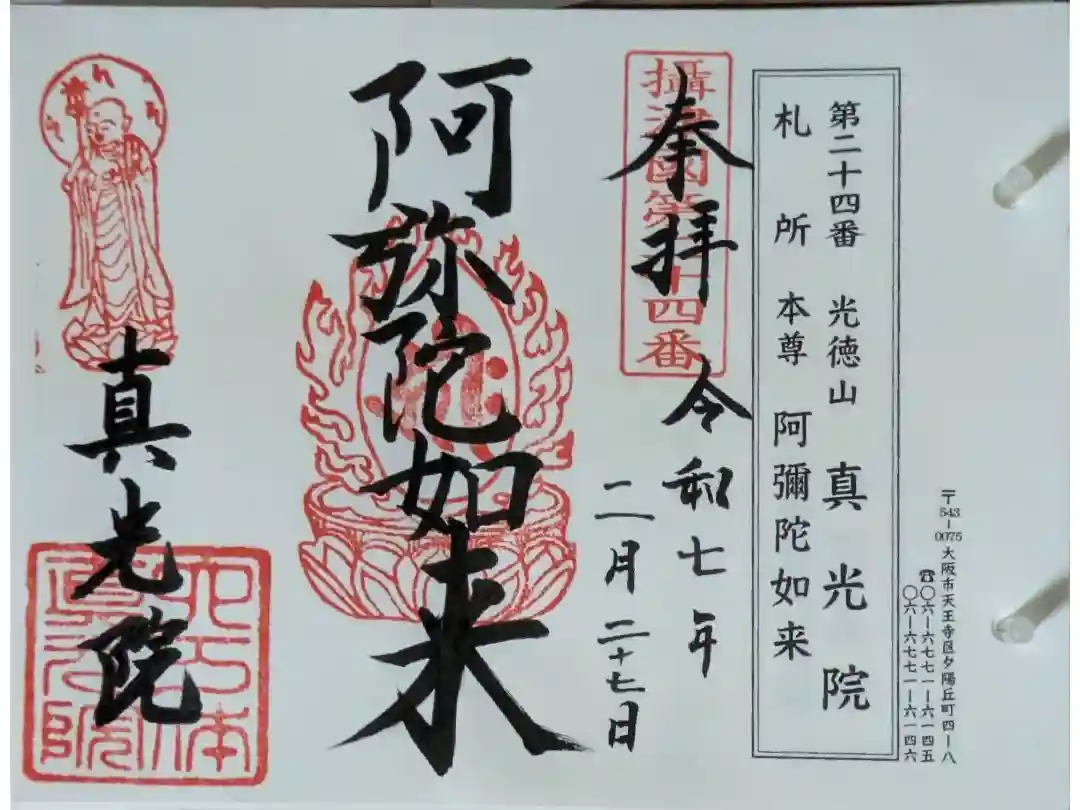 〒543-0075 大阪市天王寺区夕陽丘町四ー八
☎〇六ー六七七一ー六一四五
〇六ー六七七一ー六一四六
第二十四番 光徳山 真光院
札所 本尊 阿彌陀如来
攝津國第二十四番
奉拝 令和七年
二月二十七日
阿弥陀如来
真光院